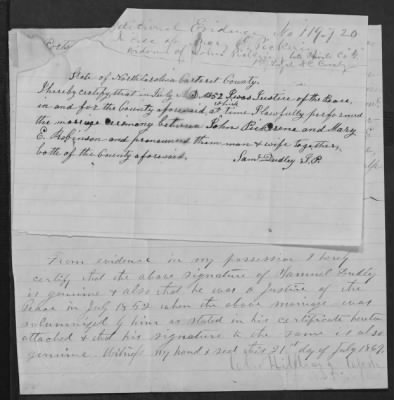 Additional Evidence No 119,120
In case of Mary E.
widow of John
State of North Carolina Carteret County.
I hereby certify that in July A.D. 1852 I was Justice of the Peace,
in and for the County aforesaid, at which time I lawfully performed
the marriage ceremony between John and Mary
E. Robinson and pronounced them man & wife together,
both of the County aforesaid.
Saml Dudley J.P.
From evidence in my possession I hereby
certify that the above signature of Samuel Dudley
is genuine & also that he was a Justice of the
Peace in July 1852 when the above marriage was
solemnized by him as stated in his certificate hereto
attached & that his signature to the same is also
genuine. Witness my hand & seal this 21st day of July 1869.